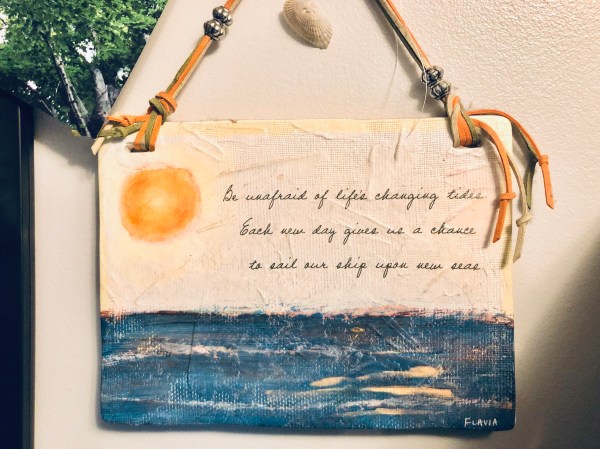 Be unafraid of life's changing tides
Each new day gives us a chance
to sail our ship upon new seas
FLAVIA